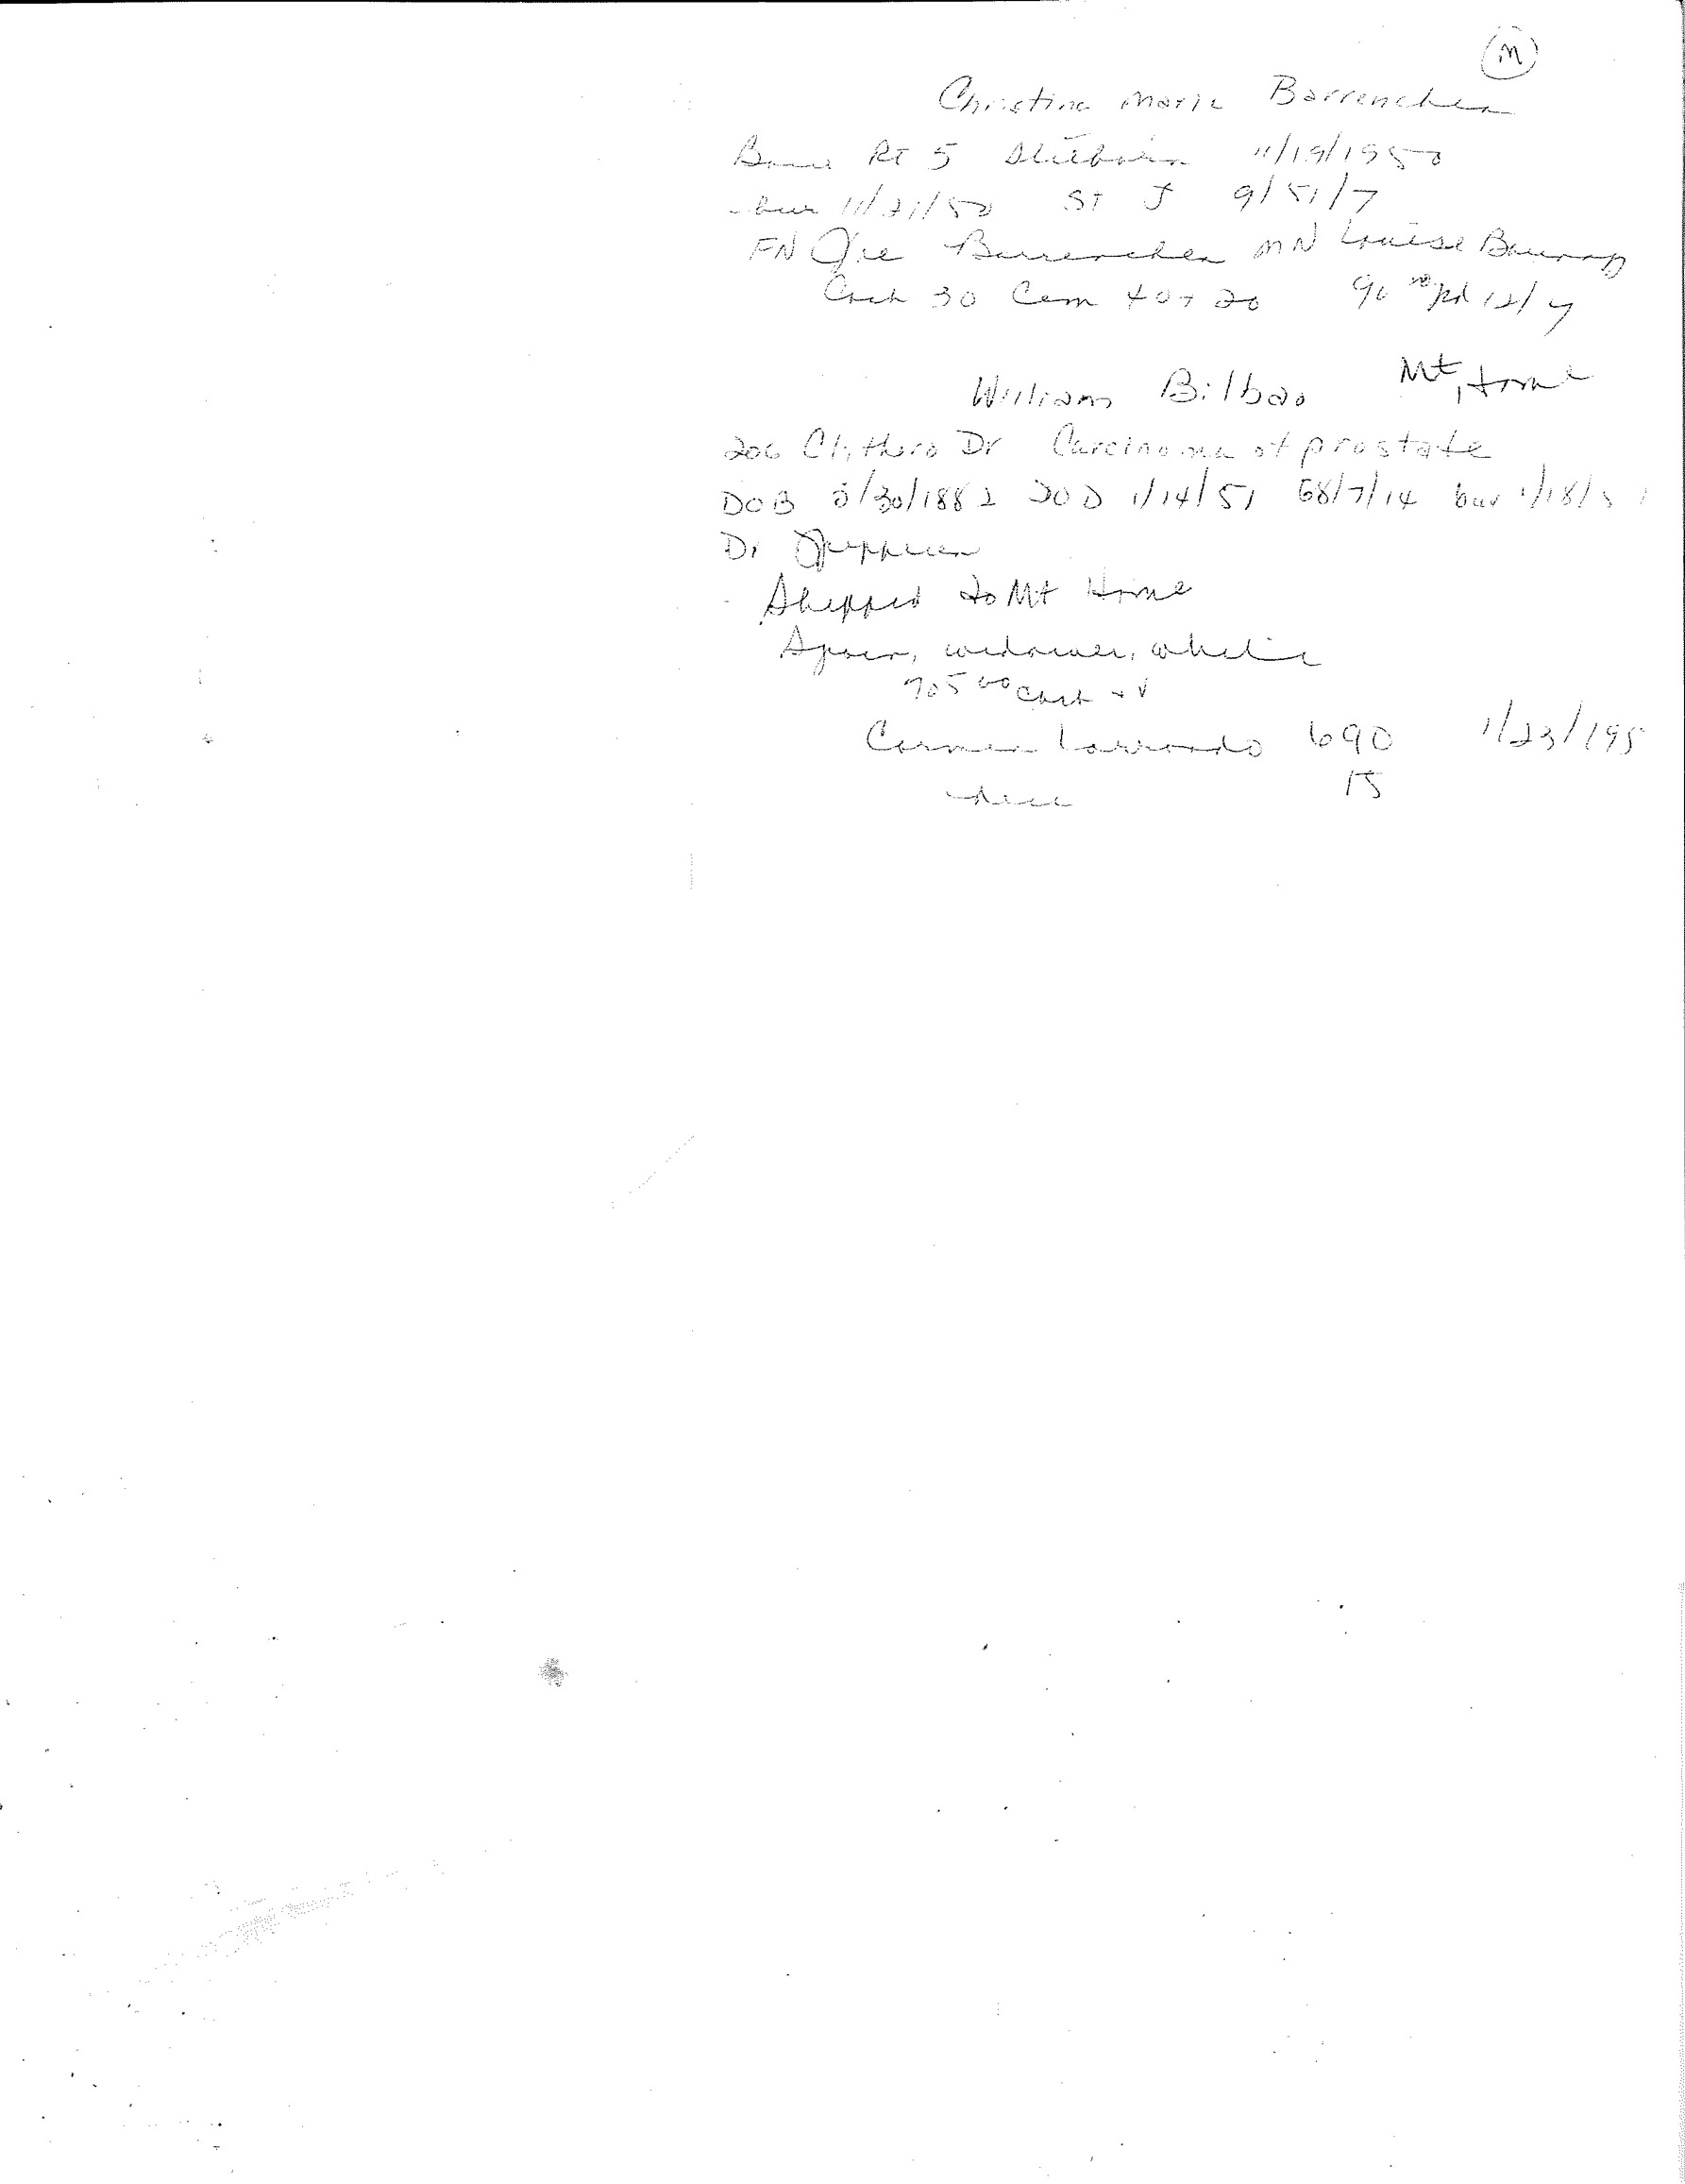 M
Christina Marie Barrenchea
Boise Rt 5 Stillborn 11/19/1950
bur 11/21/50 St J 9/51/7
FN Joe Barrenchea MN Louise
Cash 30 Cem 40 + 20 90 00 pd 12/7
William Bilbao Mt, Home
206 Clithero Dr Carcinoma of prostate
DOB 5/30/1882 DOD 1/14/51 68/7/14 bur 1/18/51
Dr
Shipped to Mt Home
Spain, widower, white
705 00 Cash + V
Carmen Larrondo 690 1/23/195
15